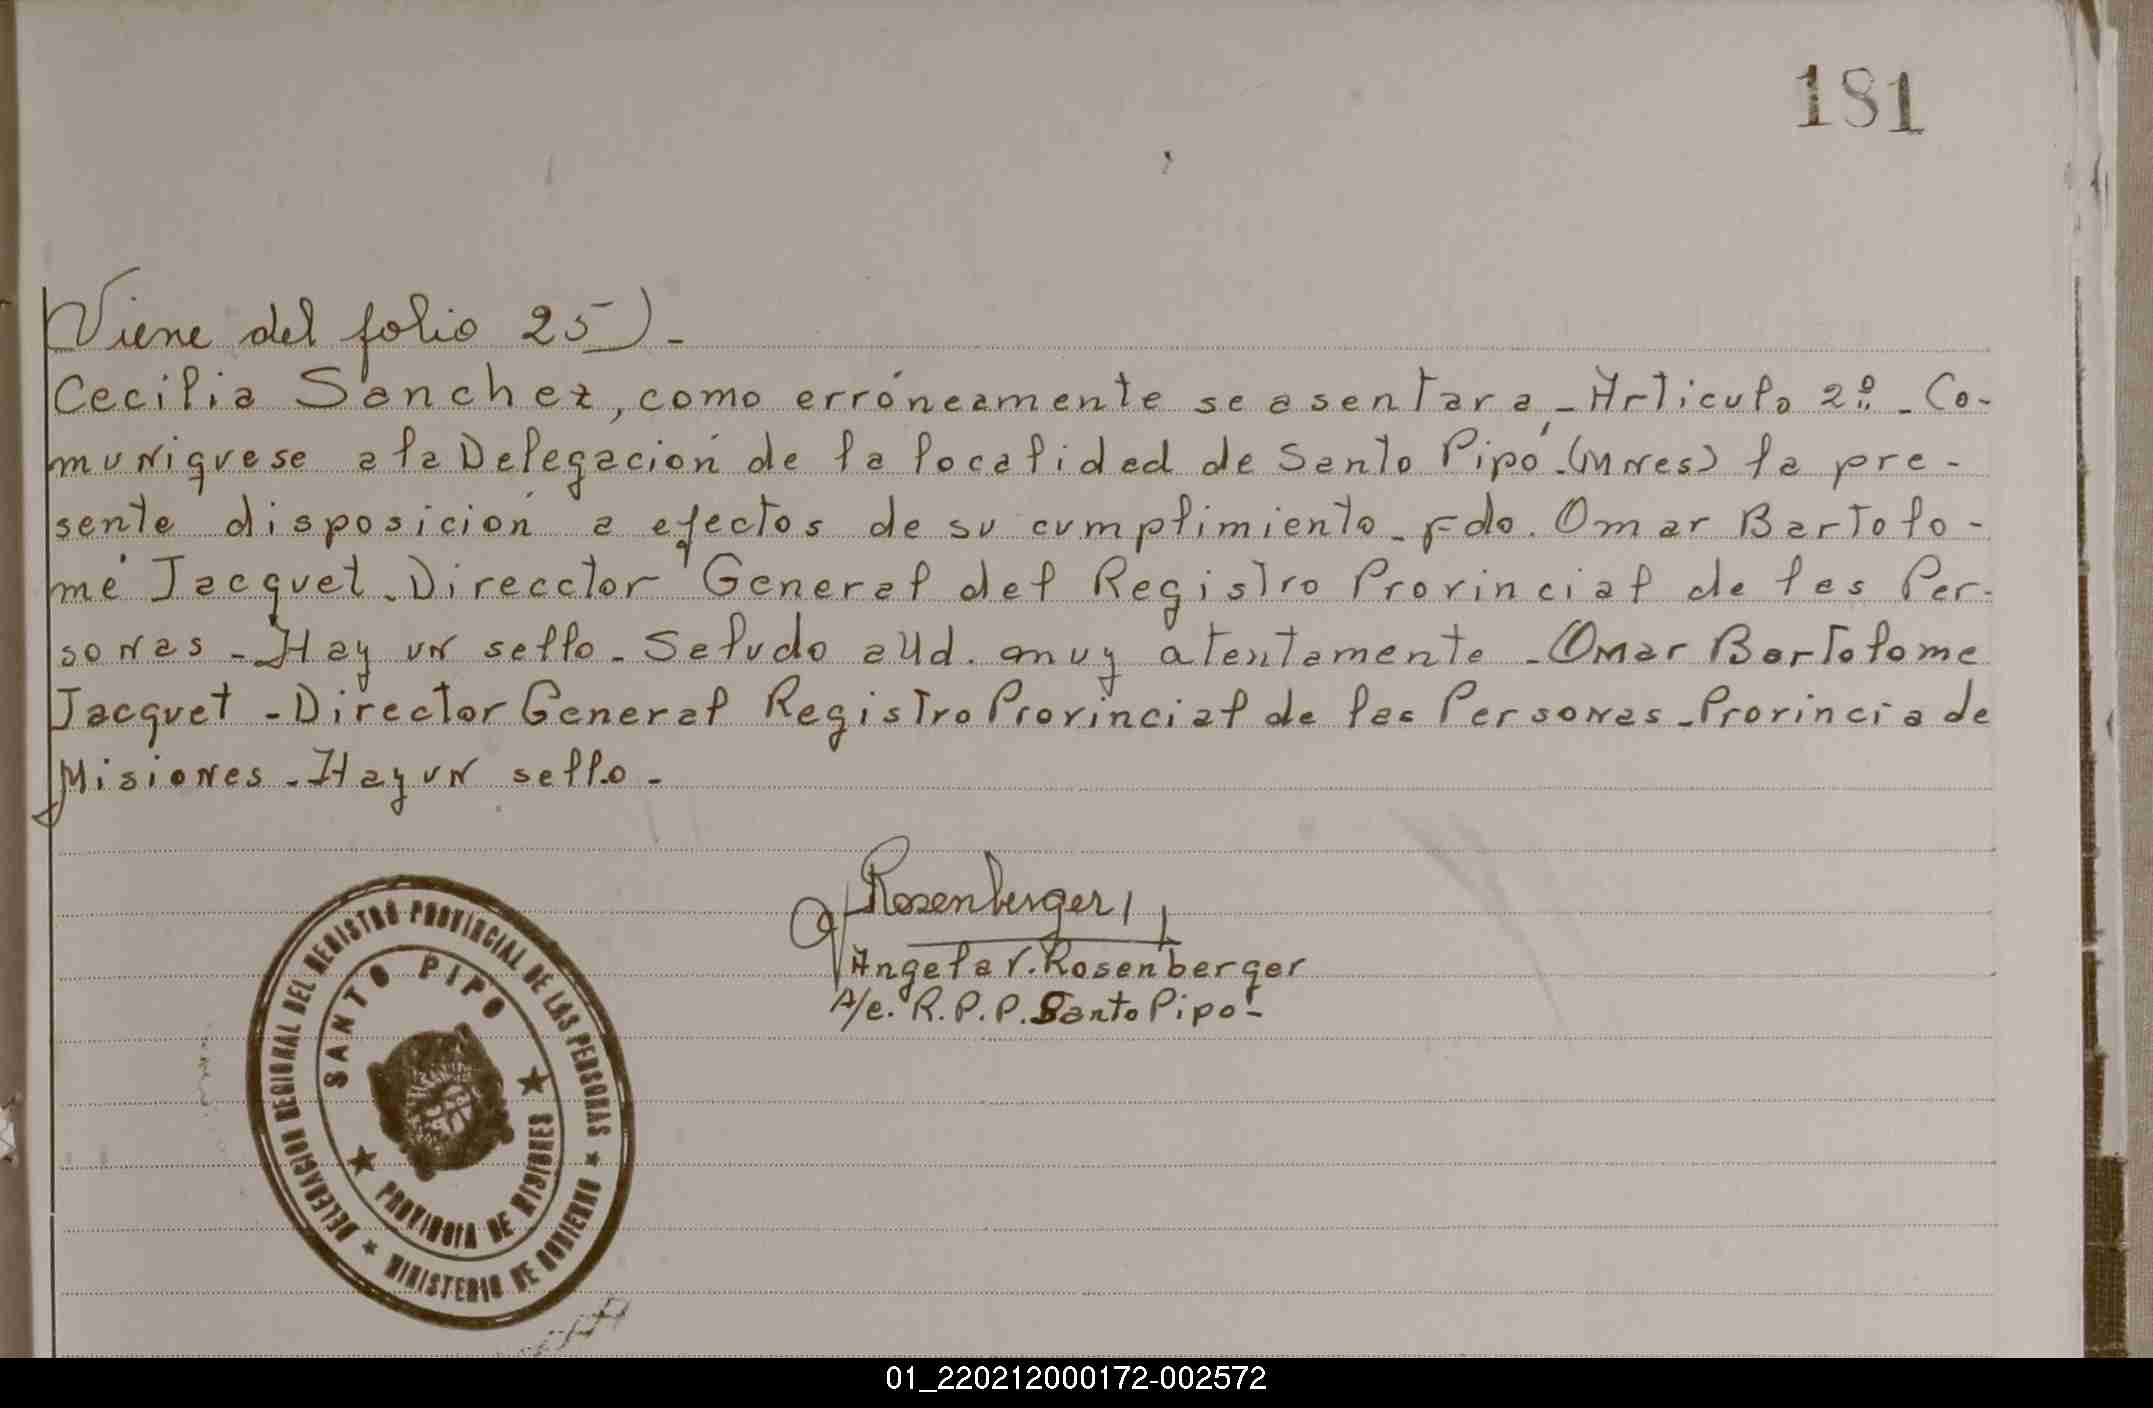 181
Viene del folio 25)-
Cecilia Sanchez, como erróneamente se asentara - Articulo 2º - Co-
muniquese a la Delegación de la localidad de Santo Pipó - (Mnes) la pre-
sente disposición a efectos de su cumplimiento - Fdo. Omar Bartolo-
mé Jacquet - Direcctor General del Registro Provincial de las Per-
sonas - Hay un sello - Saludo a Ud. muy atentamente - Omar Bartolome
Jacquet - Director General Registro Provincial de las Personas - Provincia de
Misiones - Hay un sello -
Rosenberger
Angela V. Rosenberger
A/c. R.P.P. Santo Pipó -
DELEGACION REGIONAL DEL REGISTRO PROVINCIAL DE LAS PERSONAS
SANTO PIPO
PROVINCIA DE MISIONES
MINISTERIO DE GOBIERNO
01_220212000172-002572